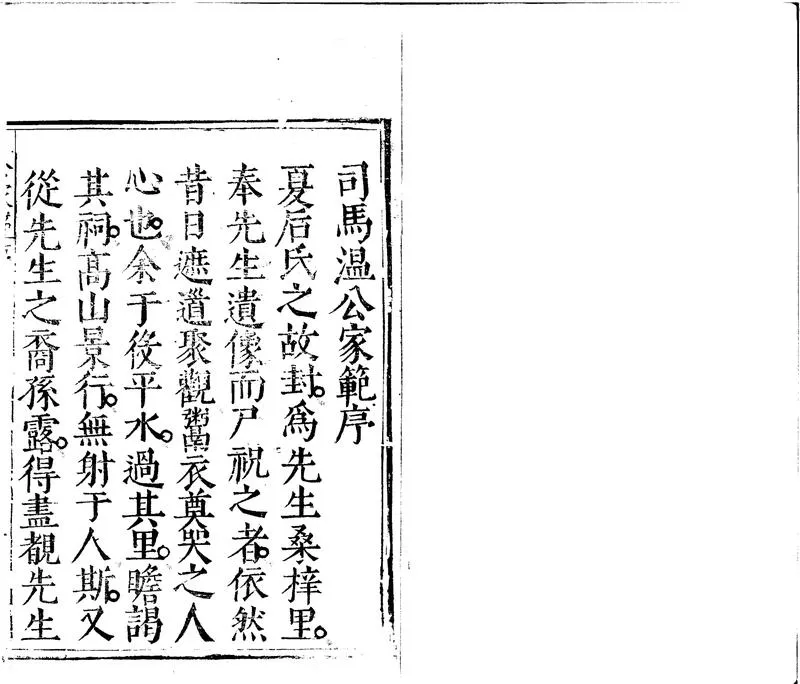 司馬温公家範序
夏后氏之故封。為先生桑梓里。
奉先生遺像而尸祝之者。依然
昔日遮道聚觀鬻衣奠哭之人
心也。余于役平水。過其里。瞻謁
其祠。高山景行。無射于人斯。又
從先生之裔孫露。得盡覩先生